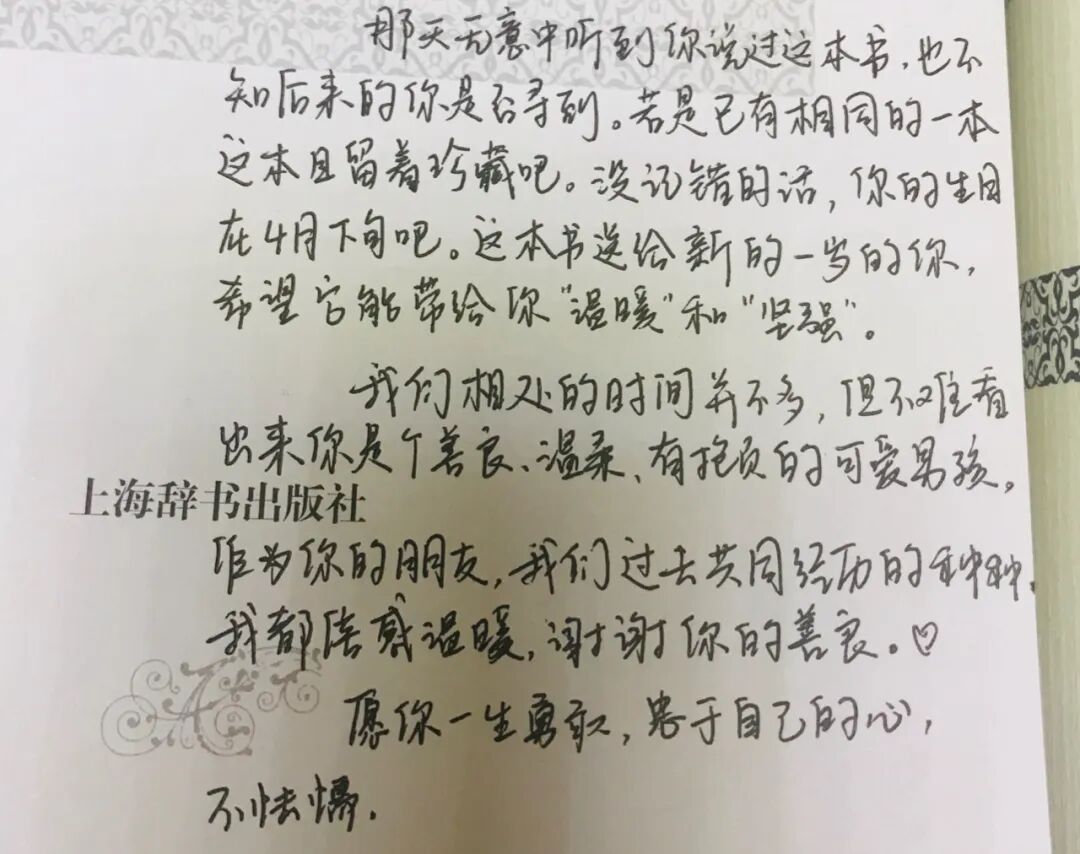 那天无意中听到你说过这本书，也不
知后来的你是否寻到。若是已有相同的一本
这本且留着珍藏吧。没记错的话，你的生日
在4月下旬吧。这本书送给新的一岁的你，
希望它能带给你“温暖”和“坚强”。
我们相处的时间并不多，但不难看
出来你是个善良、温柔、有抱负的可爱男孩。
上海辞书出版社
作为你的朋友，我们过去共同经历的种种，
我都倍感温暖，谢谢你的善良。♡
愿你一生勇敢，忠于自己的心，
不怯懦．